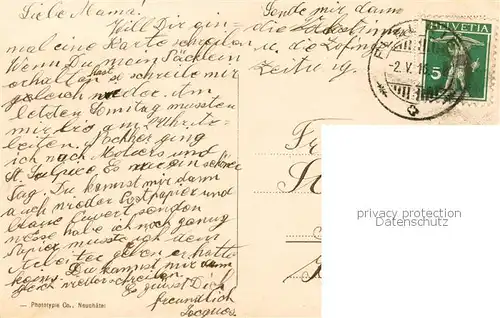 Liebe Mama!
Will Dir gin=
mal eine Karte schreiben
Wenn Du mein Päcklein
erhalten hast so schreibe mir
gleich wieder. Am
letzten Sonntag mussten
wir bis am Uhr
ich nach Motiers und
St. Sulpice. Es war ein schöner
Tag. Du kannst mir dann
auch wieder Postpapier und
blaue Cuvert senden
habe ich noch genug
Papier musste ich dem
geben er hatte
keins. Du kannst mir dann
gleich wieder schreiben
Es grüsst Dich
freundlich
Jacques
Sende mir dann
die
u. die Zofinger
Zeitung.
HELVETIA
5
-2.V.16.
privacy protection
watermark
— Phototypie Co., Neuchâtel